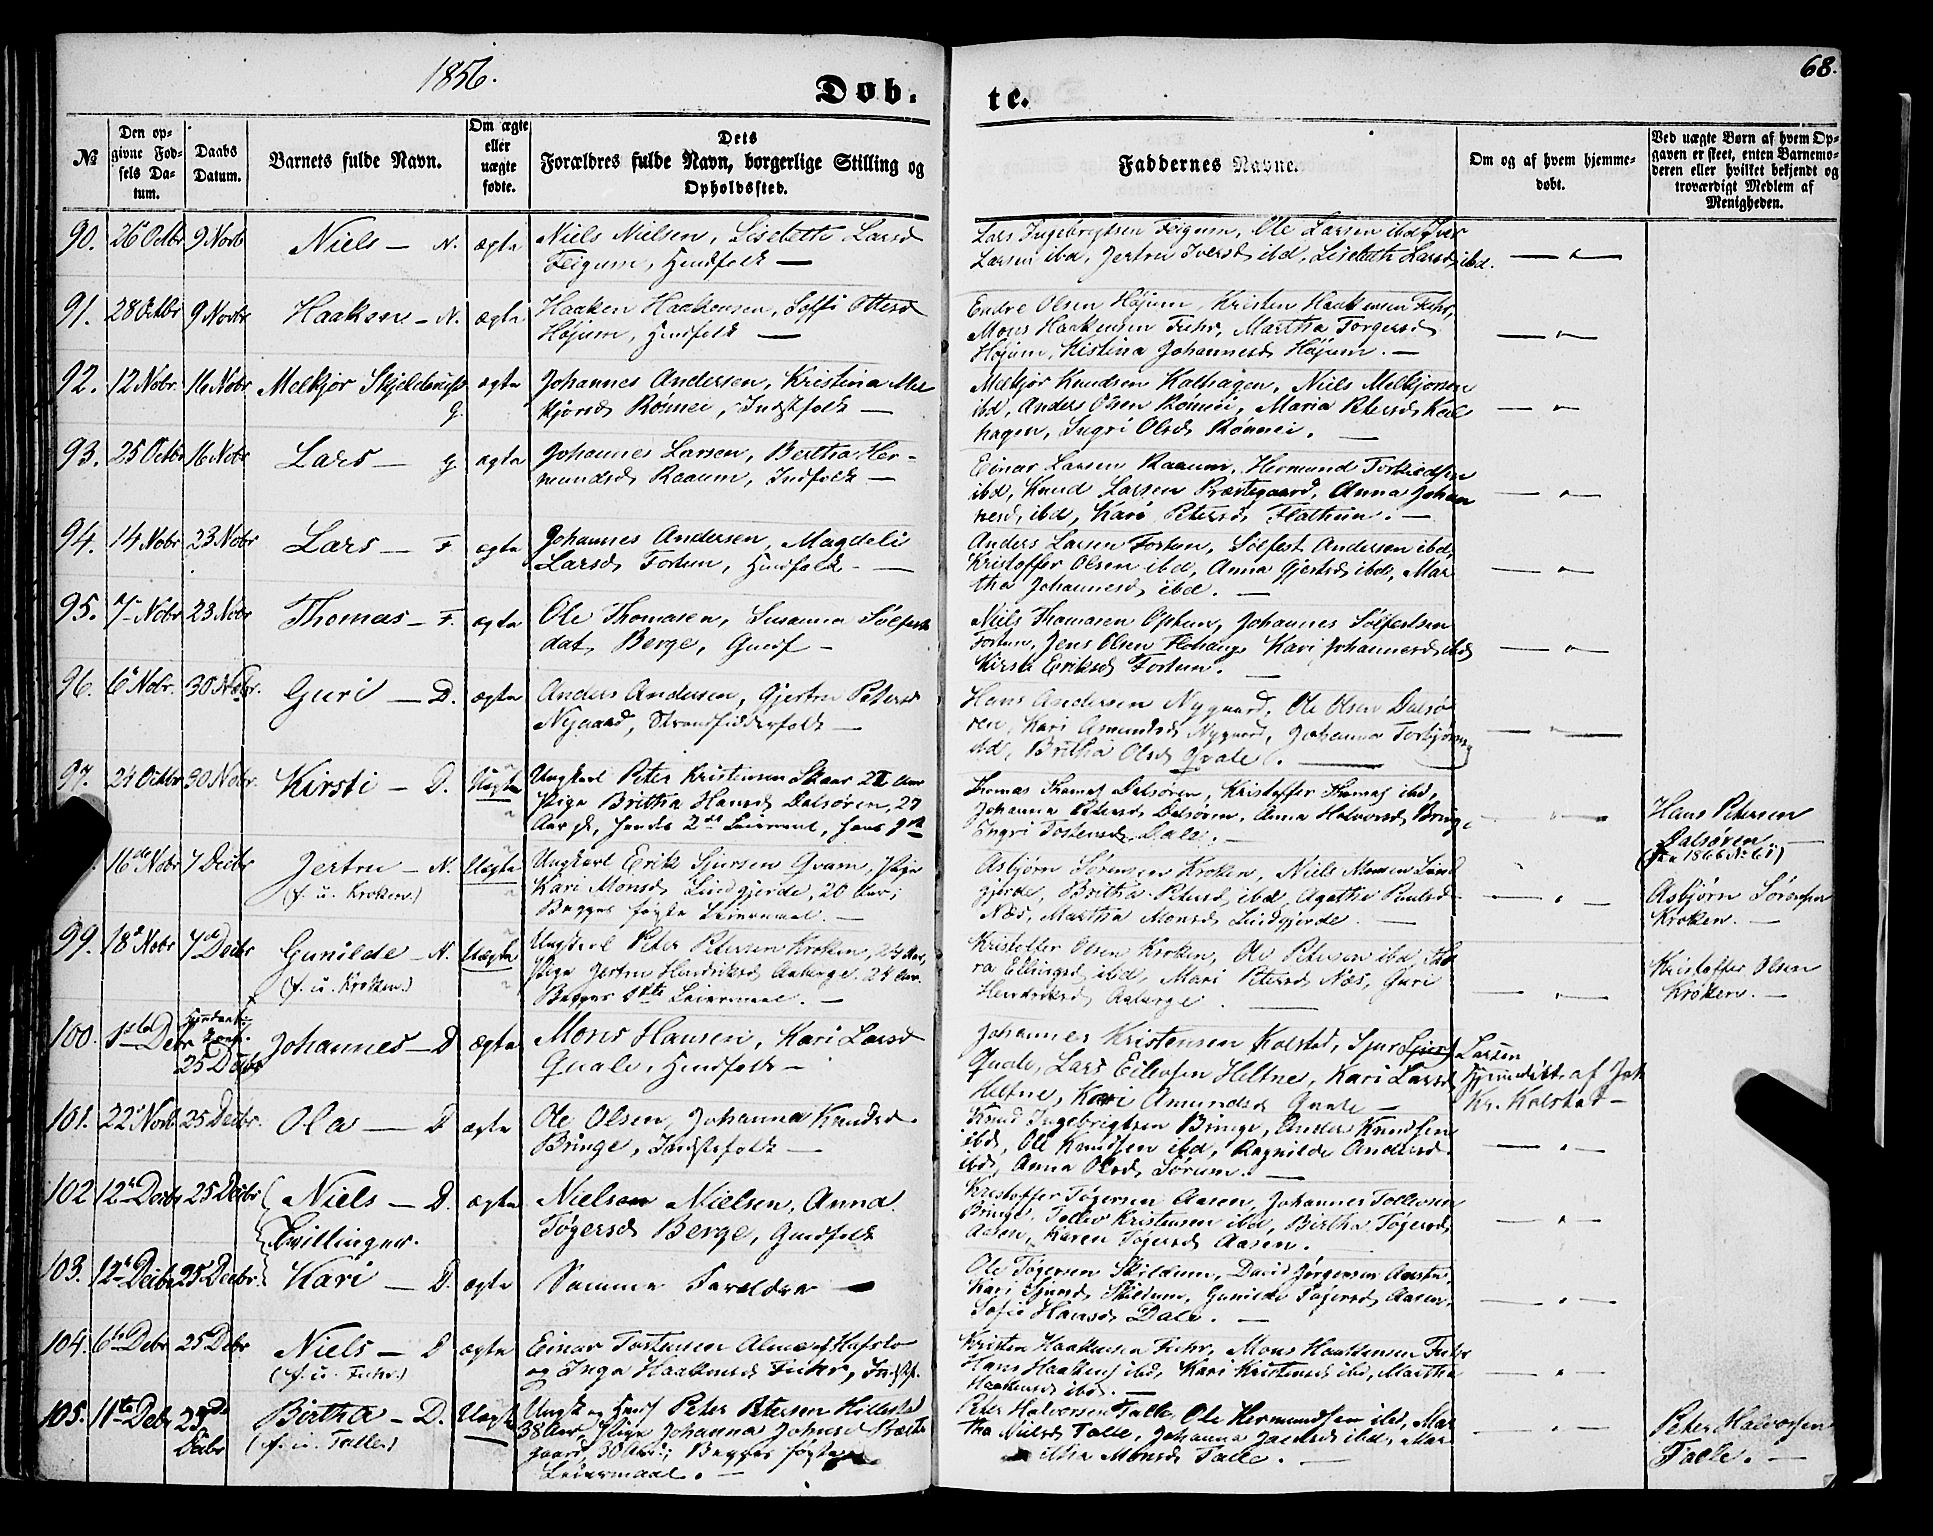 1856.
68.
Døb. te.
№
Den op-
givne Fød-
sels Da-
tum.
Daabs
Datum.
Barnets fulde Navn.
Om ægte
eller
uægte
fødte.
Dets
Forældres fulde Navn, borgerlige Stilling og
Opholdssted.
Faddernes Navne.
Om og af hvem hjemme-
døbt.
Ved uægte Børn af hvem Op-
gaven er skeet, enten Barnemo-
deren eller hvilket bekjendt og
troværdigt Medlem af
Menigheden.
90. 26 Octbr 9 Novb Niels — N. ægte
Niels Nielsen, Lisebeth Larsd
Feigum, Huusfolk —
Lars Ingebrigtsen Feigum, Ole Larsen ibd, Iver
Larsen ibd, Jertru Iversd ibd, Lisebeth Larsd, ibd.
91. 28 Octbr 9 Novbr Haakon — N. ægte
Haaken Haakensen, Ottersd
Højum, Huusfolk —
Endre Olsen Højum, Kristen Haakensen Fuhr,
Mons Haakensen Fuhr, Martha Torgersd
Højum, Kistina Johannesd Højum. —
92. 12 Nobr. 16 Nobr Melkjor Skjeldrup G. ægte
Johannes Andersen, Kristina Mel
kjorsd Rönnei, Indstfolk —
Melkjor Knudsen Kalhagen, Niels Melkjorsen
ibd, Anders Olsen Rönnei, Maria Petersd Kal
hagen, Ingri Olsd Rönnei. —
93. 25 Octbr 16 Nobr Lars — G. ægte
Johannes Larsen, Bertha Her-
mundsd Raaum, Indfolk —
Einar Larsen Raaum, Hermund
ibd, Knud Larsen Præstegaard, Anna Johan
nesd, ibd, Kari Petersd, Flathun. —
94. 14 Nobr 23 Nobr Lars — F. ægte
Johannes Andersen, Magdeli
Larsd, Fortun, Huusfolk. —
Anders Larsen Fortun, Sölfest Andersen ibd,
Kristoffer Olsen ibd, Anna Gjertsd ibd, Mar
tha Johannesd ibd. —
95. 7 Nobr 23 Nobr Thomas — F. ægte
Ole Thomasen, Susanna Sölfest
dat, Berge, Gmdf —
Niels Thomasen Optun, Johannes Sölfestsen
Fortun, Jens Olsen Kari Johannesd ibd
Kirsti Eriksd Fortun. —
96. 6 Nobr. 30 Nobr. Guri — D. ægte
Anders Andersen, Gjertru Petersd
Nygaard, Strandsidderfolk —
Hans Andersen Nygaard, Ole Olsen Dalsö
ren, Kari Asmundsd Nygaard, Johanna
ibd, Britha Olsd Qvale. —
97. 24 Octbr 30 Nobr. Kirsti — D. Uægte
Ungkarl Peter Kristensen Skaar 22 Aar
Pige Britha Hansd Dalsören, 27
Aar gl, hendes 2det Leiermaal, hans
Thomas Dalsören, Kristoffer ibd,
Johanna Petersd Dalsören, Anna Halvorsd Bringe
Ingri Tostensd Dale. —
Hans Petersen
Dalsören —
16de Nobr 7 Decbr Jertru — N. Uægte
(f. u. Kroken.)
Ungkarl Erik Sjursen Qvam, Pige
Kari Monsd Lindgjerde, 20 Aar;
Begges første Leiermaal. —
Asbjörn Sörensen Kroken, Niels Monsen Lind
gjerde, Britha Petersd ibd, Agatha
Næs, Martha Monsd Lindgjerde. —
Asbjörn Sörensen
Kroken. —
99. 18 Nobr 7 Decbr Gunilde — N. Uægte
(f. u. Kroken.)
Ungkarl Peter Petersen Kroken, 24 Aar,
Pige Jertru Hendriksd Aaberge. 24 Aar.
Begges 1ste Leiermaal. —
Kristoffer Olsen Kroken, Ole Petersen ibd,
ra Ellingsd, ibd, Mari Petersd Næs, Guri
Hendriksd Aaberge
Kristoffer Olsen
Kroken. —
100. 1ste Debr 25 Decbr Johannes — D ægte
Mons Hansen, Kari Larsd
Qvale, Huusfolk —
Johannes Kristensen Kolstad, Sjur Larsen
Qvale, Lars Heltne, Kari Larsd
Heltne, Kari Amundsd Qvale —
Hjemdöbt af Joh
Kr. Kolstad —
101. 22 Novb. 25 Decbr. Ola — D ægte
Ole Olsen, Johanna Knudsd
Bringe, Indstfolk —
Knud Ingebrigtsen Bringe, Anders Knudsen
ibd, Ole Knudsen ibd, Ragnilde Andersd
ibd, Anna Olsd Sörum. —
102 12 Decbr 25 Decbr Niels — D. ægte
Tvillinger.
Nielson Nielsen, Anna
Tögersd Berge, Gmdfolk
Kristoffer Tögersen Aasen, Johannes Tollevsen
Bringe, Tollev Kristensen ibd, Birtha Tögersd,
Aasen, Karen Tögersd Aasen.
103. 12 Decbr 25 Decbr. Kari — D. ægte
Samme Foreldre —
Ole Tögersen Skildum, David Jörgensen
Kari Sjursd Skildum, Gunilde Tögersd Aasen,
Sofie Hansd Dale. —
104. 6te Debr 25 Debr Niels — D ægte
(f. u. Fuhr.)
Einar Tostensen Alme af Hafslo
og Inga Haakensd Fuhr, Indstf.
Kristen Haakensen Fuhr, Mons Haakensen Fuhr
Hans ibd, Kari Kristensd ibd, Martha
Haakensd ibd. —
105. 11te Debr 25de Decbr Birtha — D. Uægte
(f. u. Talle)
Ungk og Peter Petersen Hillestad
38 Aar, Pige Johanna Johnsd Præste
gaard, 30 Aar; Begges første
Leiermaal. —
Peter Halvorsen Talle, Ole Hermundsen ibd, Mar
tha Nielsd Talle, Johanna ibd, Mar
etha Monsd Talle. —
Peter Halvorsen
Talle. —